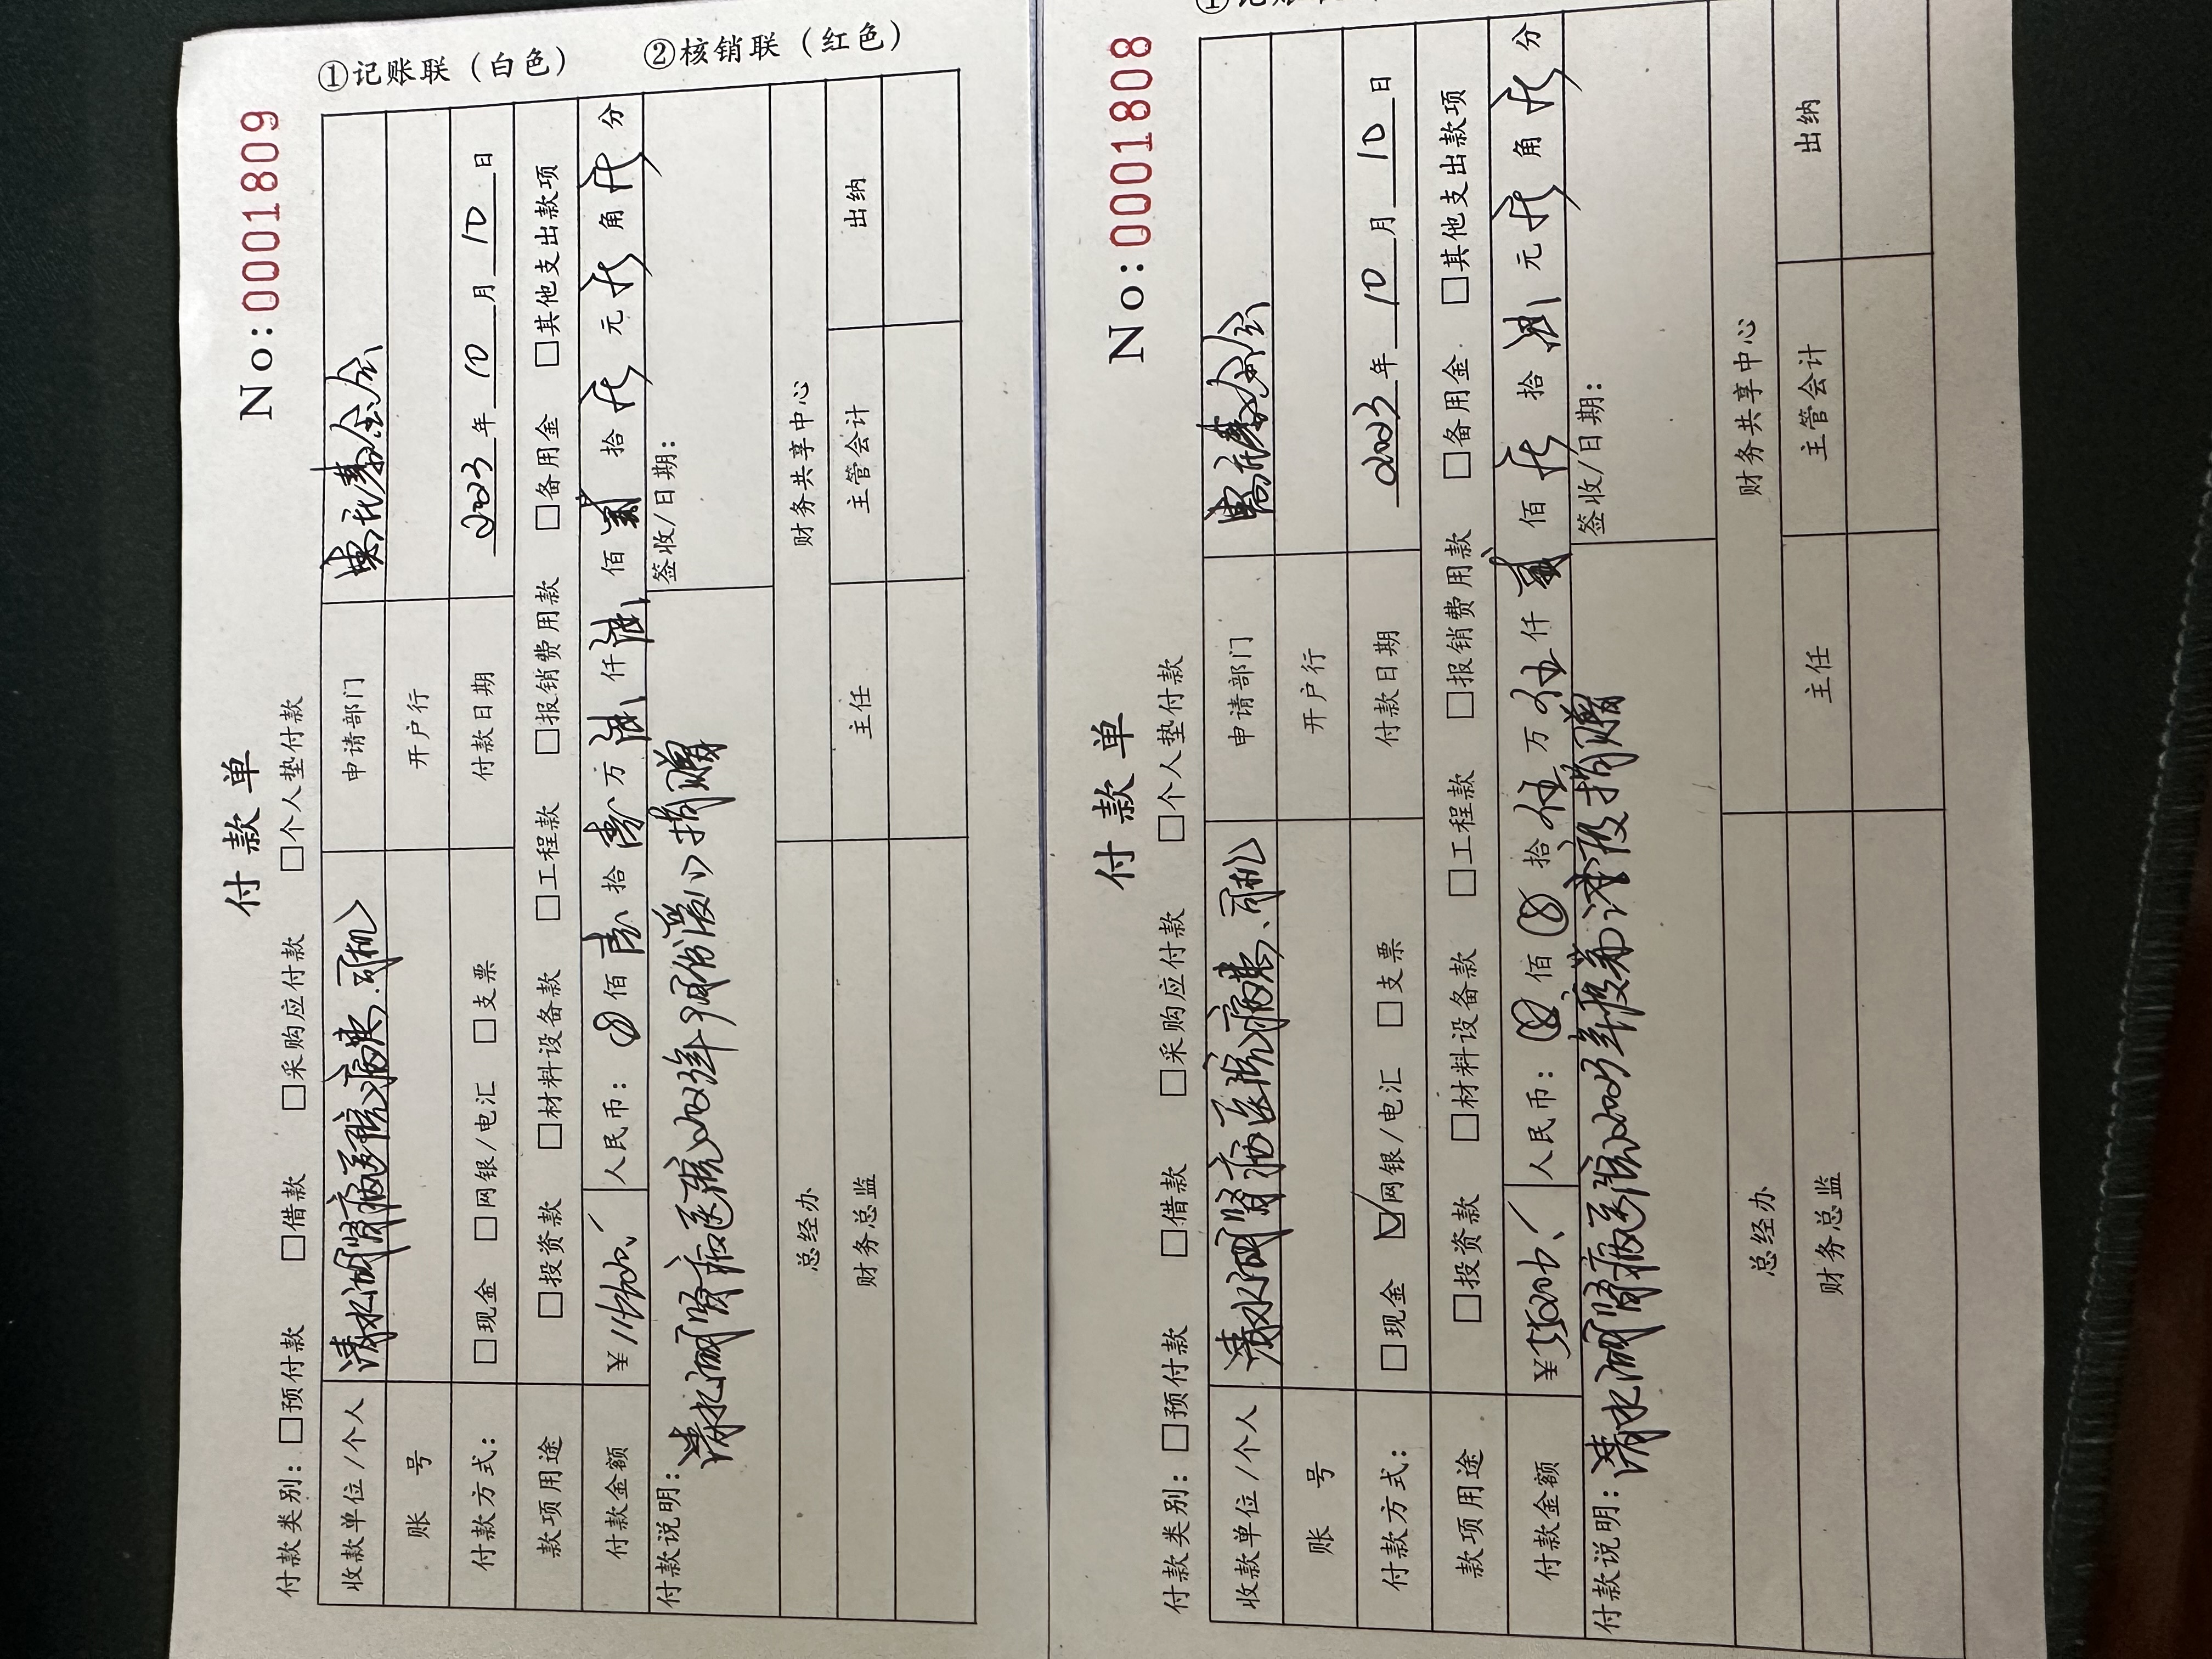 付款单
No:0001809
付款类别：□预付款 □借款 □采购应付款 □个人垫付款
①记账联（白色） ②核销联（红色）
收款单位/个人 清水湖肾病医院病患、司机 申请部门 基金会
账 号 开户行
付款方式： □现金 □网银/电汇 □支票 付款日期 2023年10月10日
款项用途 □投资款 □材料设备款 □工程款 □报销费用款 □备用金 □其他支出款项
付款金额 ¥ 人民币： 佰 拾 万 仟 佰 贰 拾 元 角 分
付款说明： 清水湖肾病医院2023年9月份 捐赠
签收/日期：
总经办 财务共享中心
财务总监 主任 主管会计 出纳
付款单
No:0001808
付款类别：□预付款 □借款 □采购应付款 □个人垫付款
收款单位/个人 清水湖肾病医院病患、司机 申请部门 基金会
账 号 开户行
付款方式： □现金 ☑网银/电汇 □支票 付款日期 2023年10月10日
款项用途 □投资款 □材料设备款 □工程款 □报销费用款 □备用金 □其他支出款项
付款金额 ¥ 人民币： 佰 拾 伍 万 伍 仟 贰 佰 拾 元 角 分
付款说明： 清水湖肾病医院2023年 捐赠
签收/日期：
总经办 财务共享中心
财务总监 主任 主管会计 出纳